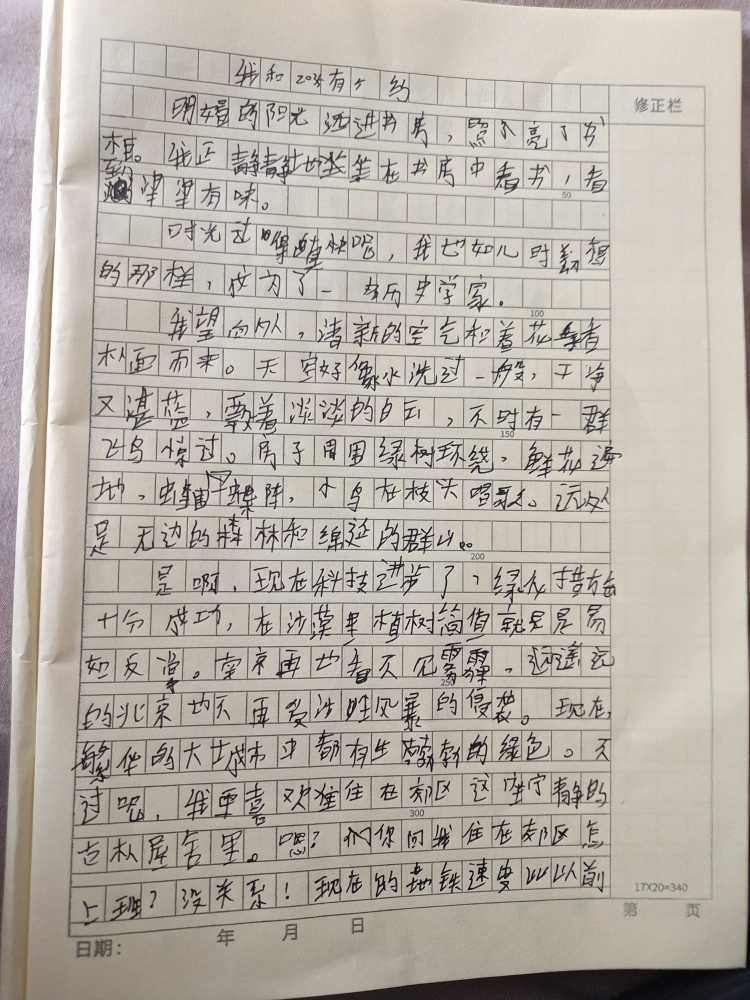 我和2035有个约
修正栏
明媚的阳光洒进书房，照亮了书
柜。我正静静地坐在书房中看书，看
得津津有味。
50
时光过得真快呢，我也如儿时梦想
的那样，成为了一名历史学家。
100
我望向窗外，清新的空气和着花香
扑面而来。天空好像水洗过一般，干净
又湛蓝，飘着淡淡的白云，不时有一群
150
飞鸟惊过。房子周围绿树环绕，鲜花遍
地，小鸟在枝头唱歌。远处
是无边的森林和绵延的群山。
200
是啊，现在科技进步了，绿化措施
十分成功，在沙漠里植树简直就是易
如反掌。南京再也看不见雾霾，遥远
250
的北京也不再受沙尘风暴的侵袭。现在，
繁华的大城市中都有生的绿色。不
过呢，我更喜欢住在郊区这座宁静的
300
古朴屋舍里。嗯？你问我住在郊区怎
上班？没关系！现在的地铁速度比以前
17X20=340
第 页
日期： 年 月 日